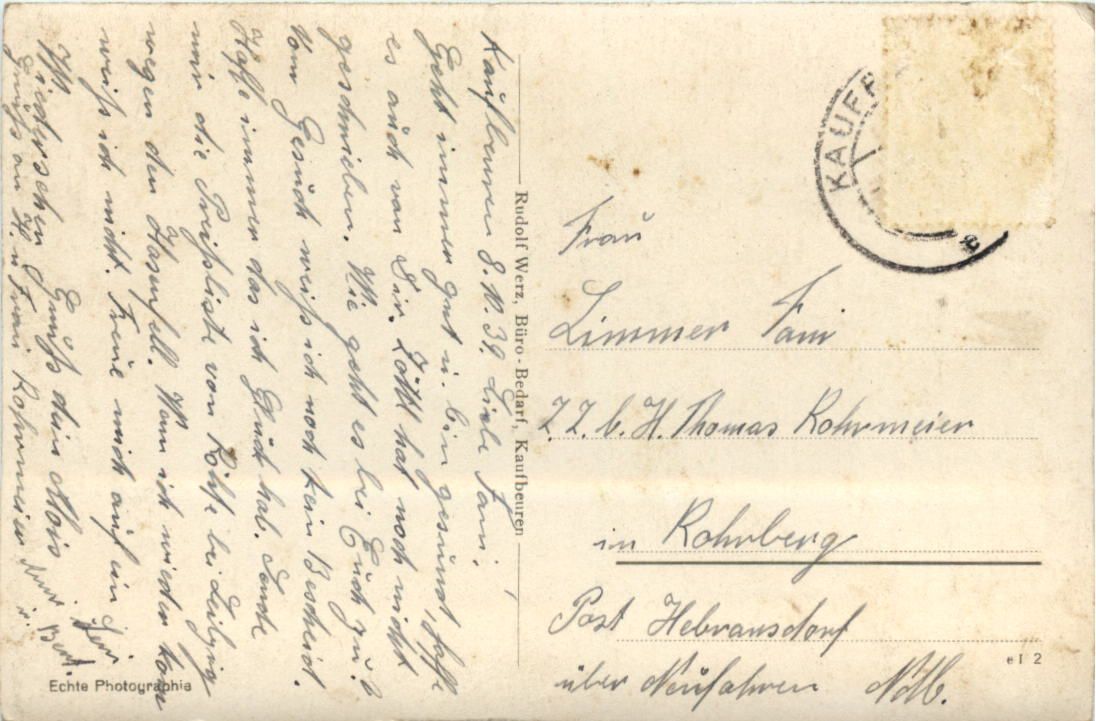 Kaufbeuren 8.V.39. Liebe Fani!
Geht immer gut u. bin gesund, hoffe
es auch von Dir. Zöttl hat noch nicht
geschrieben. Wie geht es bei Euch zu?
Vom Gesuch weiß ich noch kein Bescheid.
Hoffe immer das ich Glück hab. Sende
mir die Preisliste von
wegen den Hasenfell. Wann ich wieder kom
weiß ich nicht. Freue mich auf ein
Wiedersehen Gruß dein Alois
Gruß an H. u Frau Rohrmeier
Rudolf Werz, Büro-Bedarf, Kaufbeuren
Echte Photographie
KAUFB
Frau
Limmer Fani
Z.Z. b. H. Thomas Rohrmeier
in Rohrberg
Post Hebramsdorf
über Neufahren Ndb.
e I 2